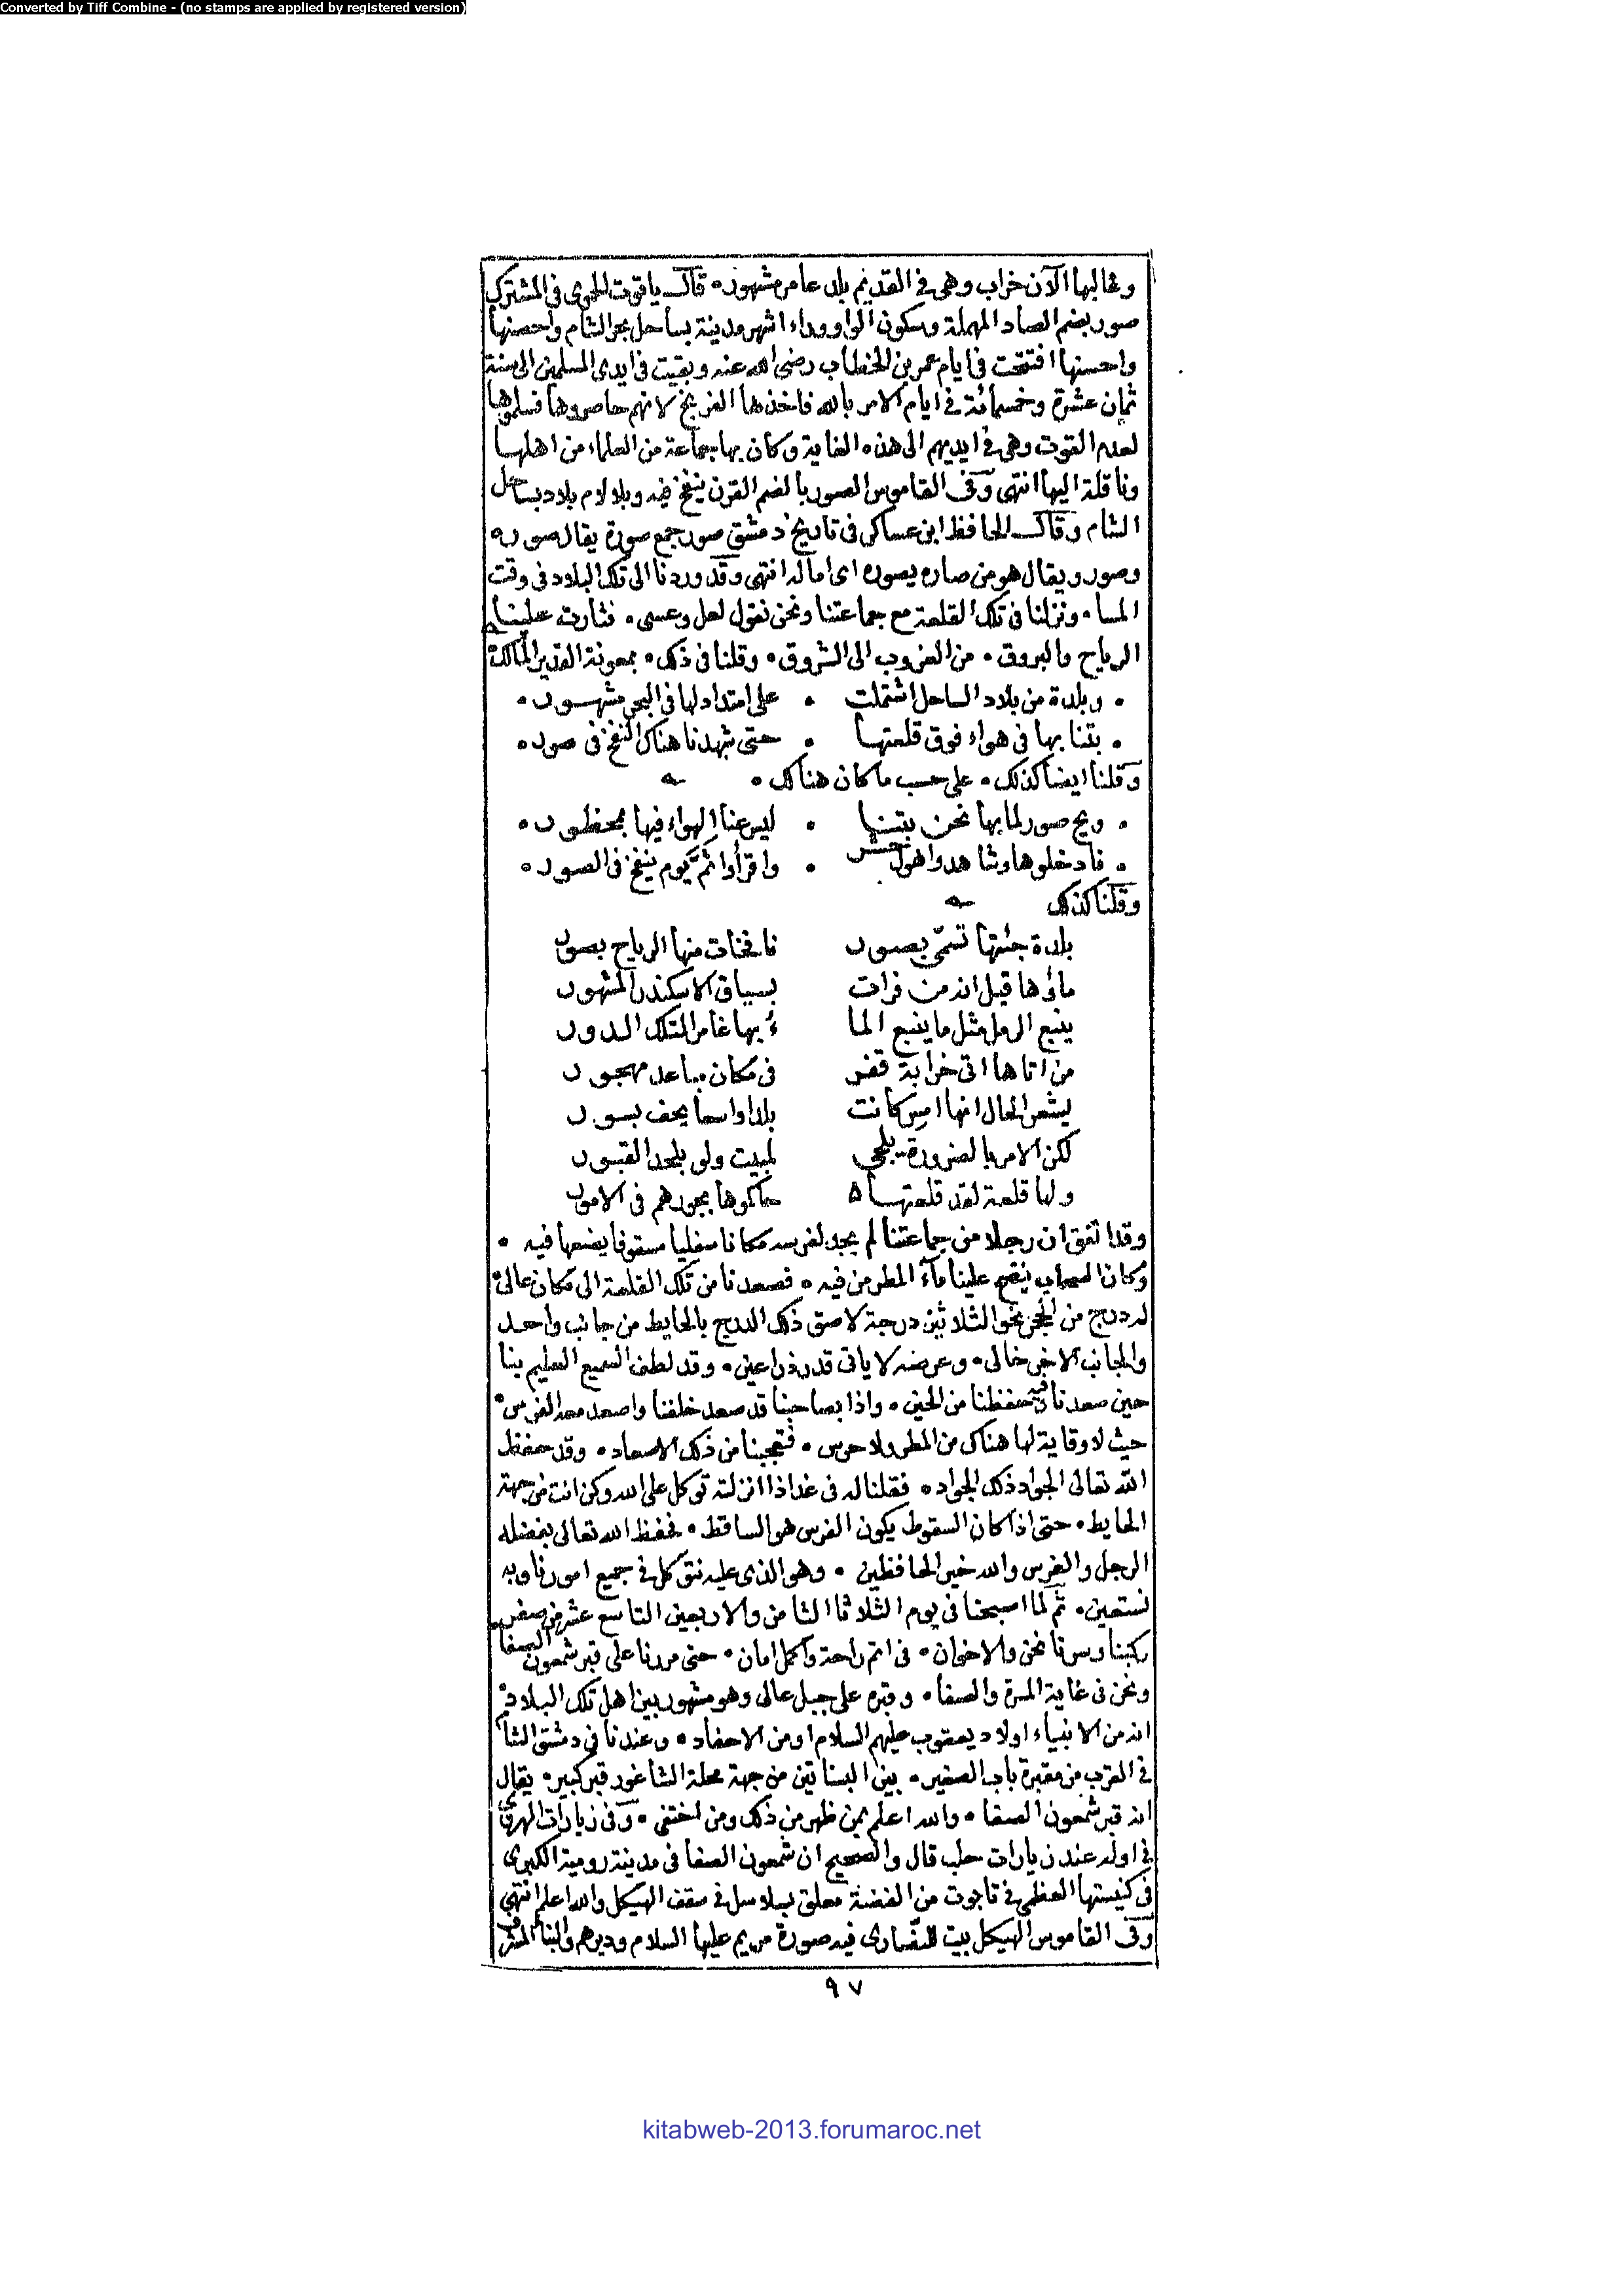 Converted by Tiff Combine - (no stamps are applied by registered version)
وغالبها الآن خراب وهى فى القديم بلد عامر مشهور ۰ قال ياقوت الحموى فى المشترك
صور بضم الصاد المهملة وسكون الواو وراء اشهر مدينة بساحل بحر الشام واحصنها
واحسنها افتتحت فى ايام عمر بن الخطاب رضى الله عنه وبقيت فى ايدى المسلمين الى سنة
ثمان عشرة وخمسمائة فى ايام الامر بالله فاخذها الفرنج لانهم حاصروها فسلموها
لعدم القوت وهى فى ايديهم الى هذه الغاية وكان بها جماعة من العلماء من اهلها
وناقلة اليها انتهى وفى القاموس الصور بالضم القرن ينفخ فيه وبلا لام بلاد بساحل
الشام وقال الحافظ ابن عساكر فى تاريخ دمشق صور جمع صورة يقال صوره
وصور ويقال هو من صاره يصوره اى اماله انتهى وقد وردنا الى تلك البلاد فى وقت
المسا ۰ ونزلنا فى تلك القلعة مع جماعتنا ونحن نقول لعل وعسى ۰ فثارت علينا
الرياح والبروق ۰ من الغروب الى الشروق ۰ وقلنا فى ذلك ۰ بمعونة القدير المالك
۰ وبلدة من بلاد الساحل اشتملت ۰ على امتداد لها فى البحر مشهور ۰
۰ بتنا بها فى هواء فوق قلعتها ۰ حتى شهدنا هناك النفخ فى صور ۰
وقلنا ايضا كذلك ۰ على حسب ما كان هنالك ۰
۰ ويح صور لما بها نحن بتنا ۰ ليس عنا الهواء فيها بمحظور ۰
۰ فادخلوها وشاهدوا هول حشر ۰ واقرأوا ثم يوم ينفخ فى الصور ۰
وقلنا كذلك
بلدة جئتها تسمى بصور نافخات منها الرياح بصور
ماؤها قيل انه من فرات بسياق الاسكندر المشهور
ينبع الرمل مثل ما ينبع الما ء بها غامر لتلك الدور
من اتاها اتى خرابة قفر فى مكان مباعد مهجور
يشعر الحال انها امس كانت بلدا واسعا يحف بسور
لكن الامر بالضرورة يلجى لمبيت ولو بلحد القبور
ولها قلعة لقد قلعتها حاكموها بجورهم فى الامور
وقد اتفق ان رجلا من جماعتنا لم يجد لفرسه مكانا سفليا مسقوفا يضعها فيه ۰
وكان السحاب علينا مآء المطر من فيه ۰ فصعدنا من تلك القلعة الى مكان عالى
له درج من الحجر نحو الثلاثين درجة لاصق ذلك الدرج بالحايط من جانب واحد
والجانب الاخر خالى ۰ وعرضه لا ياتى قدر ذراعين ۰ وقد لطف السميع العليم بنا
حين صعدنا فيه حفظنا من الحين ۰ واذا بصاحبنا قد صعد خلفنا واصعد معه الفرس ۰
حيث لا وقاية لها هناك من المطر ولا حرس ۰ فتعجبنا من ذلك الاصعاد ۰ وقد حفظ
الله تعالى الجواد ذلك الجواد ۰ فقلنا له فى غد اذا انزلته توكل على الله وكن انت من جهة
الحايط ۰ حتى اذا كان السقوط يكون الفرس هو الساقط ۰ فحفظ الله تعالى بفضله
الرجل والفرس والله خير الحافظين ۰ وهو الذى عليه نتوكل فى جميع امورنا وبه
نستعين ۰ ثم لما اصبحنا فى يوم الثلاثا الثامن والاربعين التاسع عشر من صفر
ركبنا وسرنا نحن والاخوان ۰ فى اتم راحة واكمل امان ۰ حتى مررنا على قبر شمعون الصفا
ونحن فى غاية المسرة والصفا ۰ وقبره على جبل عالى وهو مشهور بين اهل تلك البلاد
انه من الانبياء اولاد يعقوب عليهم السلام او من الاحفاد ۰ وعندنا فى دمشق الشام
فى القرب من مقبرة باب الصغير ۰ بين البساتين من جهة محلة الشاغور قبر كبير ۰ يقال
انه قبر شمعون الصفا ۰ والله اعلم بمن ظهر من ذلك ومن اختفى ۰ وفى زيارات الهروى
فى اوله عند زيارات حلب قال والصحيح ان شمعون الصفا فى مدينة رومية الكبرى
فى كنيستها العظمى فى تابوت من الفضة معلق بسلاسل فى سقف الهيكل والله اعلم انتهى
وفى القاموس الهيكل بيت للنصارى فيه صورة مريم عليها السلام وديرهم والبنا المشرف
٩٧
kitabweb-2013.forumaroc.net